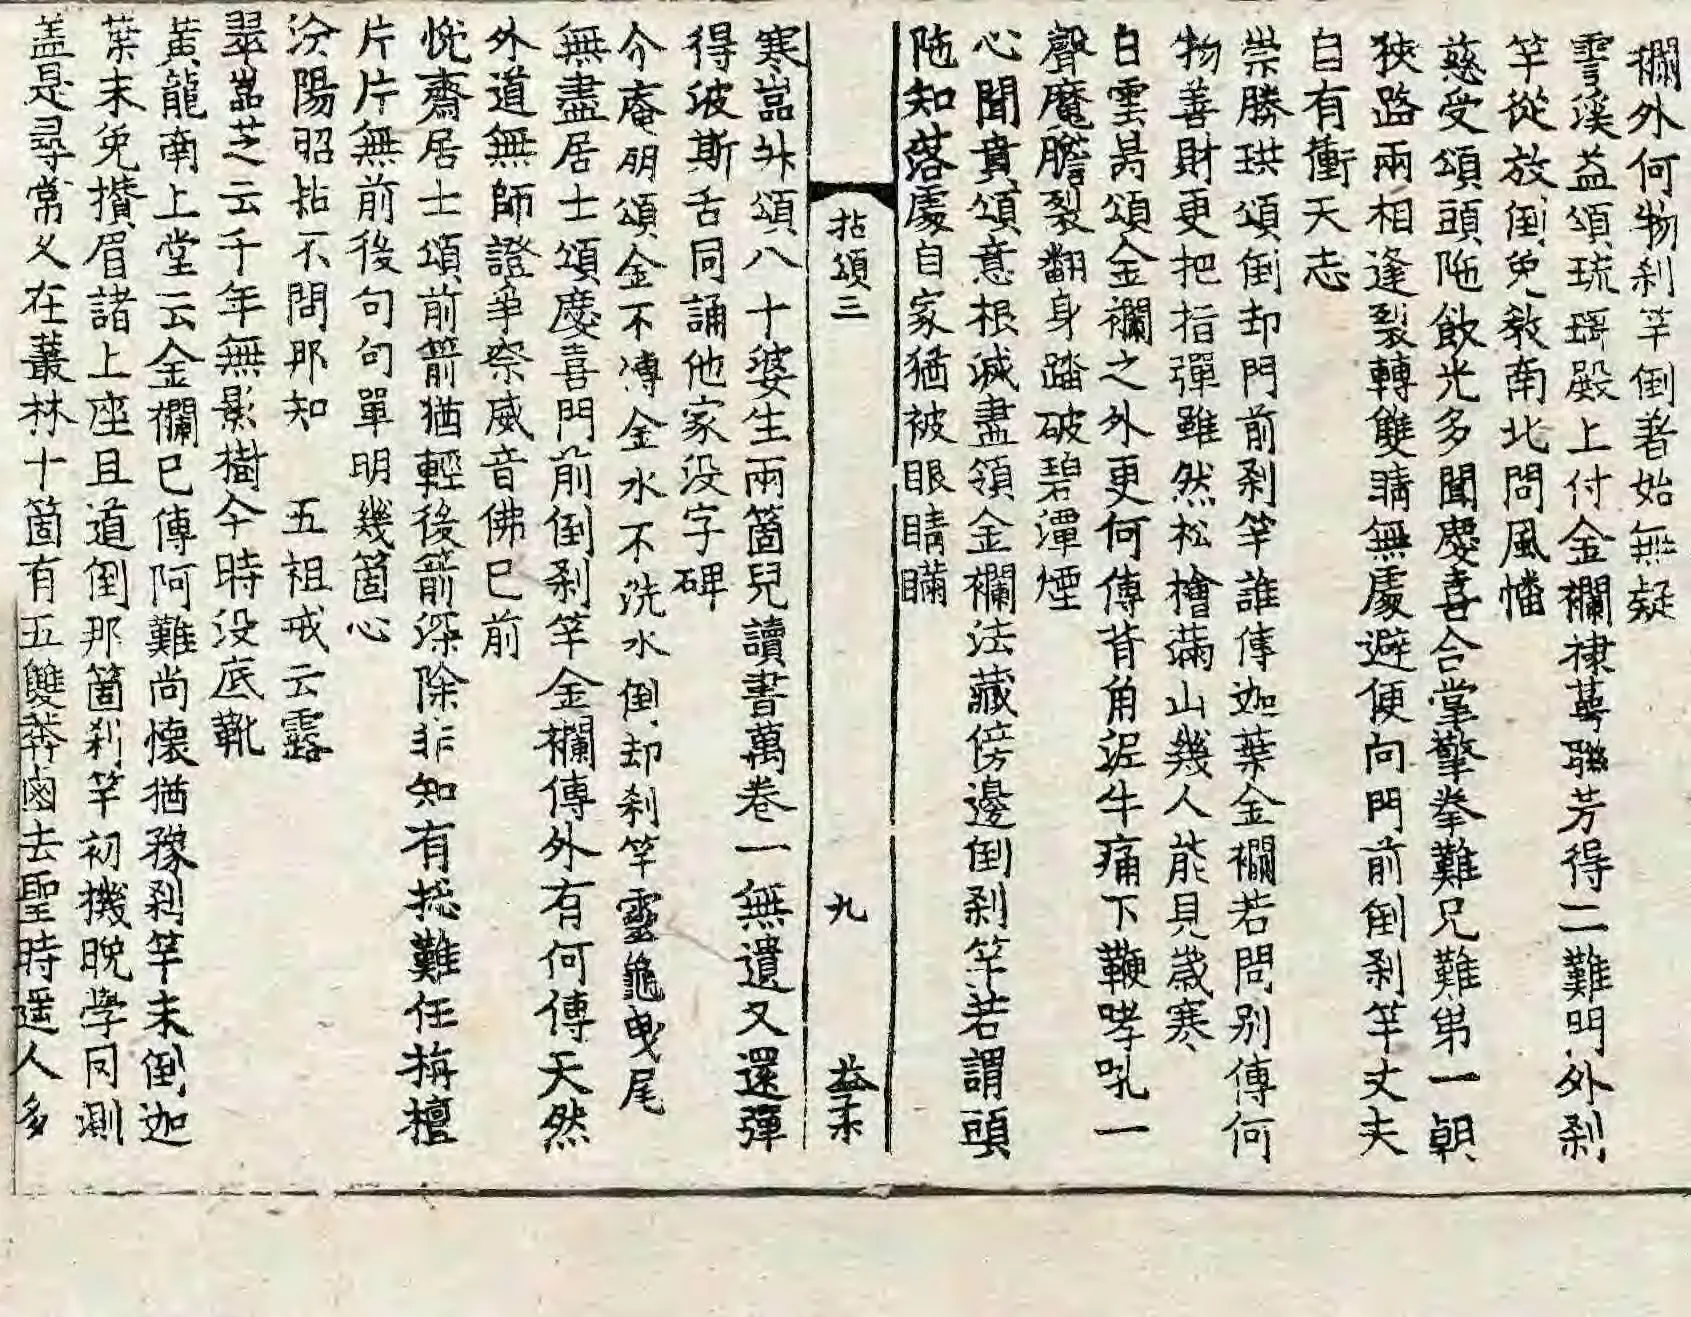 襴外何物刹竿倒着始無疑
雪溪益頌琉璃殿上付金襴棣萼聯芳得二難門外刹
竿從放倒免敎南北問風幡
慈受頌頭陁飮光多聞慶喜合掌擎拳難兄難弟一朝
狹路兩相逢裂轉雙睛無處避便向門前倒刹竿丈夫
自有衝天志
崇勝珙頌倒却門前刹竿誰傳迦葉金襴若問別傳何
物善財更把指彈雖然松檜滿山幾人能見歲寒
白雲昺頌金襴之外更何傳背角泥牛痛下鞭哮吼一
聲魔膽裂翻身踏破碧潭煙
心聞賁頌意根滅盡領金襴法藏傍邊倒刹竿若謂頭
陁知落處自家猶被眼睛瞞
拈頌三 九 益末
寒嵓升頌八十婆生兩箇兒讀書萬卷一無遺又還彈
得波斯舌同誦他家没字碑
介庵朋頌金不博金水不洗水倒却刹竿靈龜曳尾
無盡居士頌慶喜門前倒刹竿金襴傳外有何傳天然
外道無師證爭祭威音佛已前
悅齋居士頌前箭猶輕後箭深除非知有捴難任栴檀
片片無前後句句單明幾箇心
汾陽昭拈不問那知 五祖戒云露
翠嵓芝云千年無影樹今時没底靴
黃龍南上堂云金襴已傳阿難尙懷猶豫刹竿未倒迦
葉未免攢眉諸上座且道倒那箇刹竿初機晚學罔測
盖是尋常久在叢林十箇有五雙莽鹵去聖時遥人多